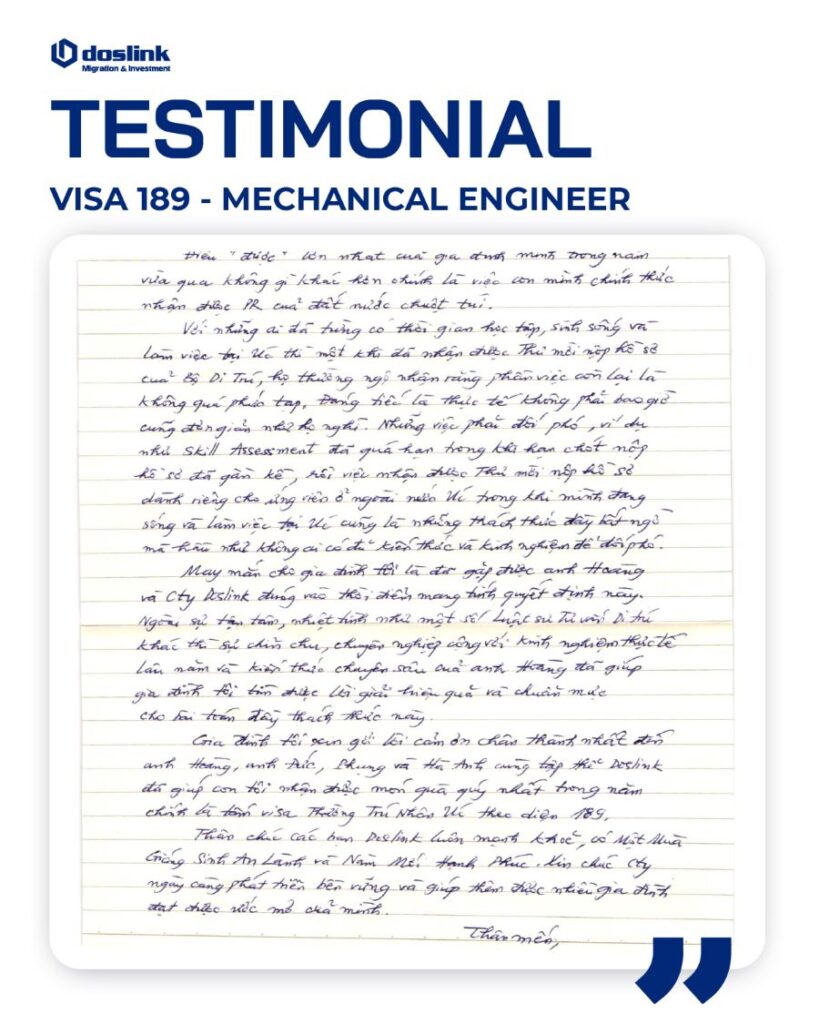 doslink
Migration & Investment
TESTIMONIAL
VISA 189 - MECHANICAL ENGINEER
Điều "được" lớn nhất của gia đình mình trong năm
vừa qua không gì khác hơn chính là việc con mình chính thức
nhận được PR của đất nước chuột túi.
Với những ai đã từng có thời gian học tập, sinh sống và
làm việc tại Úc thì một khi đã nhận được Thư mời nộp hồ sơ
của Bộ Di Trú, họ thường ngộ nhận rằng phần việc còn lại là
không quá phức tạp. Đáng tiếc là thực tế không phải bao giờ
cũng đơn giản như họ nghĩ. Những việc phải đối phó, ví dụ
như Skill Assessment đã quá hạn trong khi hạn chót nộp
hồ sơ đã gần kề, rồi việc nhận được Thư mời nộp hồ sơ
dành riêng cho ứng viên ở ngoài nước Úc trong khi mình đang
sống và làm việc tại Úc cũng là những thách thức đầy bất ngờ
mà hầu như không ai có đủ kiến thức và kinh nghiệm để đối phó.
May mắn cho gia đình tôi là đã gặp được anh Hoàng
và Cty Doslink đúng vào thời điểm mang tính quyết định này.
Ngoài sự tận tâm, nhiệt tình như một số Luật sư Tư vấn Di trú
khác thì sự chỉn chu, chuyên nghiệp cộng với kinh nghiệm thực tế
lâu năm và kiến thức chuyên sâu của anh Hoàng đã giúp
gia đình tôi tìm được lời giải hiệu quả và chuẩn mực
cho bài toán đầy thách thức này.
Gia đình tôi xin gửi lời cảm ơn chân thành nhất đến
anh Hoàng, anh Đức, Phụng và Hà Anh cùng tập thể Doslink
đã giúp con tôi nhận được món quà quý nhất trong năm
chính là tấm visa Thường Trú Nhân Úc theo diện 189.
Thân chúc các bạn Doslink luôn mạnh khoẻ, có Một Mùa
Giáng Sinh An Lành và Năm Mới Hạnh Phúc. Xin chúc Cty
ngày càng phát triển bền vững và giúp thêm được nhiều gia đình
đạt được ước mơ của mình.
Thân mến,